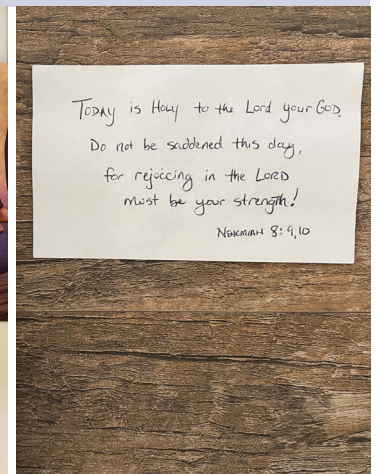 TODAY is HOLY to the Lord your GOD.
Do not be saddened this day,
for rejoicing in the LORD
must be your strength!
NEHEMIAH 8:9,10